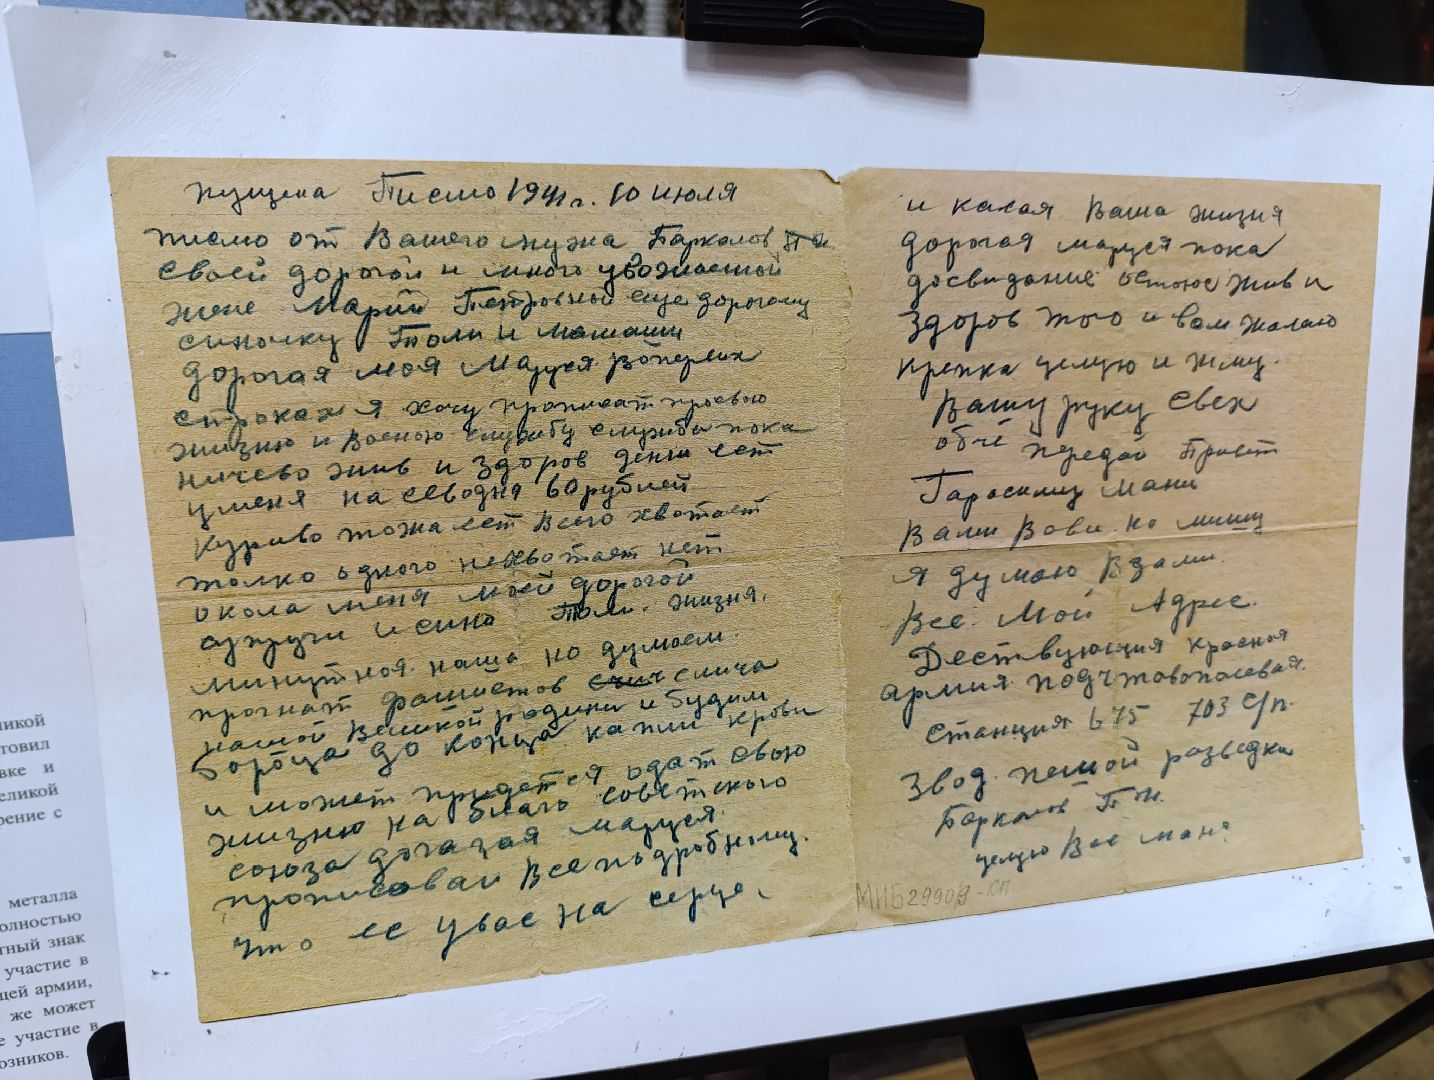 пущена Писмо 1941 г. 10 июля
писмо от Вашего мужа Баркалов
своей дорогой и много уважаемой
жене Марий Петровной еще дорогому
синочку Толи и мамаши
дорогая моя Маруся вопервих
строках я хочу прописат просвою
жизню и военою службу служба пока
ничево жив и здоров денги ест
уменя на севодня 60 рублей
Куриво тожа ест всего хватает
толко одного нехватает нет
окола меня моей дорогой
супруги исина Толи. жизня.
минутная наша но думаем.
прогнат фашистов смича
нашой Великой родини и будим
бороца до конца капли крови
и может придется одат свою
жизню на благо советского
союза Маруся.
прописовай Все подробному.
что ес увас на серце.
и какая Ваша жизня
дорогая маруся пока
досвидание остаюс жив и
здоров того и вам жалаю
крепка целую и жму.
Вашу руку Свех
обчё передай Привет
Гараскину Мани
Вами Вови. но мишу
Я думаю Взали.
Все. Мой Адрес.
Дествующия красная
армия. подчтовополевая.
станция 675 703 с/п.
Звод. пешой разведка
Баркалов П. И.
целую Вас
МИБ 29909-КП
ликой
товил
вке и
еликой
рение с
металла
олностью
тный знак
участие в
щей армии,
же может
е участие в
озников.